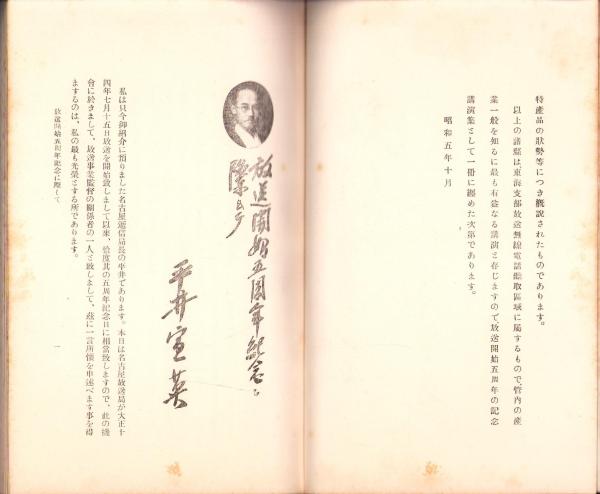 特產品の狀勢等につき槪說されたものであります。
以上の諸篇は、東海支部放送無線電話聽取區域に屬するもので、管內の產
業一般を知るに最も有益なる講演と存じますので、放送開始五周年の記念
講演集として一冊に纏めた次第であります。
昭和五年十月
放送開始五周年紀念に
際して
平井宣英
私は只今御紹介に預りました名古屋遞信局長の平井であります。本日は名古屋放送局が大正十
四年七月十五日放送を開始致しまして以來、恰度其の五周年紀念日に相當致しますので、此の機
會に於きまして、放送事業監督の關係者の一人と致しまして、玆に一言所懷を申述べます事を得
ますのは、私の最も光榮とする所であります。
放送開始五周年紀念に際して
一